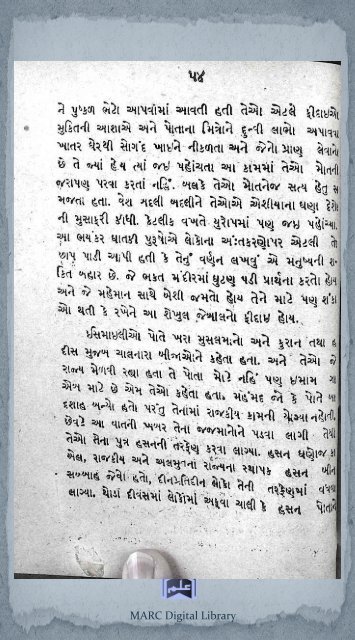 ૫૪
ને પુષ્કળ ભેટો આપવામાં આવતી હતી તેઓ એટલે ફીદાઇઓ
મુક્તિની આશાએ અને પોતાના મિત્રોને દુન્વી લાભો અપાવવા
ખાતર ઘેરથી સોગંદ ખાઇને નીકળતા અને જેનો પ્રાણ લેવાનો
છે તે જ્યાં હોય ત્યાં જઇ પહોંચતા આ કામમાં તેઓ મોતની
જરાપણ પરવા કરતા નહિં. બલકે તેઓ મોતનેજ સત્ય હેતુ સ
મજતા હતા. વેશ બદલી બદલીને તેઓએ એશીયાના ઘણા દેશો
ની મુસાફરી કીધી. કેટલીક વખતે યુરોપમાં પણ જઇ પહોંચ્યા.
આ ભયંકર ઘાતકી પુરૂષોએ લોકોના અંતઃકરણોપર એટલી તો
છાપ પાડી આપી હતી કે તેનું વર્ણન લખવું એ મનુષ્યની શ-
ક્તિ બહાર છે. જે ભકત મંદીરમાં ઘુટણ પડી પ્રાર્થના કરતો હોય
અને જે મહેમાન સાથે બેશી જમતો હોય તેને માટે પણ શંકા
ઓ થતી કે રખેને આ શેખુલ જેબાલનો ફીદાઇ હોય.
ઇસમાઇલીઓ પોતે ખરા મુસલમાનો અને કુરાન તથા હ
દીસ મુજબ ચાલનારા બીજાઓને કહેતા હતા. અને તેઓ જે
રાજ્ય મેળવી રહ્યા હતા તે પોતા માટે નહિં પણ ઇમામ ગા
એબ માટે છે એમ તેઓ કહેતા હતા. મહંમદ જો કે પોતે બા
દશાહ બન્યો હતો પરંતુ તેનામાં રાજકીય કામની યોગ્યતા નહોતી.
છેવટે આ વાતની ખબર તેના જજમાનોને પડવા લાગી તેથી
તેઓ તેના પુત્ર હસનની તરફેણ કરવા લાગ્યા. હસન ઘણોજ કા
બેલ, રાજકીય અને અલમુતના રાજ્યના સ્થાપક હસન બીન
સબ્બાહ જેવો હતો, દીનપ્રતિદીન લોકો તેની તરફેણમાં વધવા
લાગ્યા. થોડાં દીવસમાં લોકોમાં અફવા ચાલી કે હસન પોતાને
MARC Digital Library